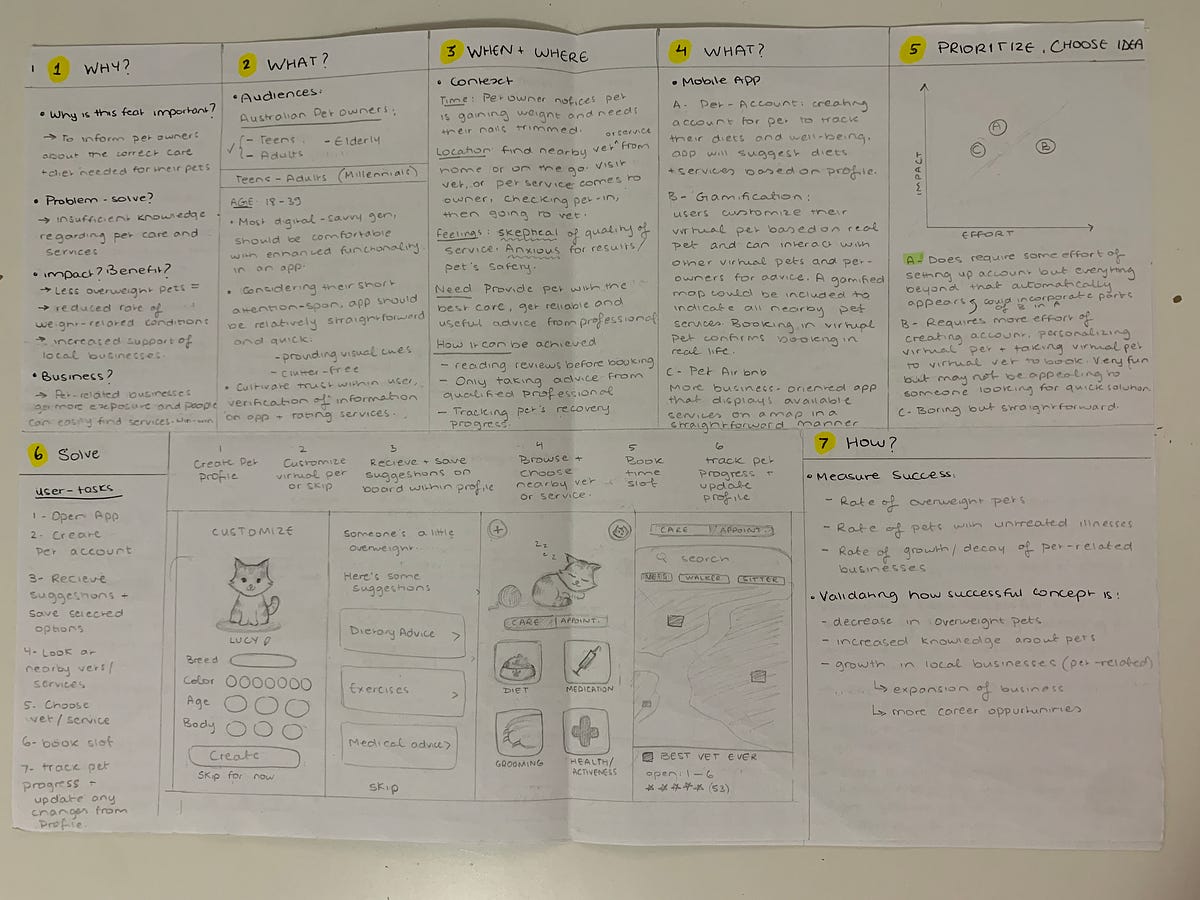 1
1 WHY?
• Why is this feat important?
→ To inform pet owners
about the correct care
+ diet needed for their pets
• Problem - solve?
→ insufficient knowledge
regarding pet care and
services
• impact? Benefit?
→ Less overweight pets =
→ reduced rate of
weight-related conditions
→ increased support of
local businesses.
• Business?
→ Pet-related businesses
get more exposure and people
can easily find services. win-win
2 WHAT?
• Audiences:
Australian Pet owners:
✓ { - Teens - Elderly
- Adults
Teens - Adults (Millennials)
AGE: 18-39
• Most digital-savvy gen,
should be comfortable
with enhanced functionality
in an app.
• Considering their short
attention-span, app should
be relatively straightforward
and quick:
- providing visual cues
- clutter-free
• Cultivate trust within user,
verification of information
on app + rating services.
3 WHEN + WHERE
• Context
Time: Pet owner notices pet
is gaining weight and needs
their nails trimmed.
or service
Location: find nearby vet ^ from
home or on the go. visit
vet, or pet service comes to
owner, checking pet-in,
then going to vet.
Feelings: skeptical of quality of
service. Anxious for results/
pet's safety.
Need Provide pet with the
best care, get reliable and
useful advice from professional
How it can be achieved
- reading reviews before booking
- Only taking advice from
qualified professional
- Tracking pet's recovery
progress.
4 WHAT?
• Mobile App
A - Pet-Account: creating
account for pet to track
their diets and well-being.
app will suggest diets
+ services based on profile.
B - Gamification:
users customize their
virtual pet based on real
pet and can interact with
other virtual pets and pet-
owners for advice. A gamified
map could be included to
indicate all nearby pet
services. Booking in virtual
pet confirms booking in
real life.
C - Pet Air bnb
More business-oriented app
that displays available
services on a map in a
straightforward manner
5 PRIORITIZE, CHOOSE IDEA
IMPACT
A
C
B
EFFORT
A - Does require some effort of
setting up account but everything
beyond that automatically
appears → could incorporate parts
of B in A
B - Requires more effort of
creating account, personalizing
virtual pet + taking virtual pet
to virtual vet to book. Very fun
but may not be appealing to
someone looking for quick solution.
C - Boring but straightforward.
6 Solve
user-tasks
1 - Open App
2 - Create
Pet account
3 - Recieve
suggestions +
save selected
options
4 - Look at
nearby vets/
services
5. Choose
vet/service
6 - book slot
7 - track pet
progress +
update any
changes from
Profile.
1
Create Pet
profile
2
Customize
virtual pet
or skip
3
Recieve + save
suggestions on
board within profile
4
Browse +
choose
nearby vet
or service.
5
Book
time
slot
6
track pet
progress +
update
profile
CUSTOMIZE
LUCY
Breed
Color
Age
Body
Create
Skip for now
Someone's a little
overweight..
Here's some
suggestions
Dietary Advice >
Exercises >
Medical advice >
SKIP
+
zz
zz
CARE | APPOINT.
DIET
MEDICATION
GROOMING
HEALTH/
ACTIVENESS
CARE APPOINT.
search
WALKER
SITTER
BEST VET EVER
open: 1-6
★★★★★ (53)
7 HOW?
• Measure Success:
- Rate of overweight pets
- Rate of pets with untreated illnesses
- Rate of growth/decay of pet-related
businesses
• Validating how successful concept is:
- decrease in overweight pets
- increased knowledge about pets
- growth in local businesses (pet-related)
↳ expansion of business
↳ more career oppurtunities